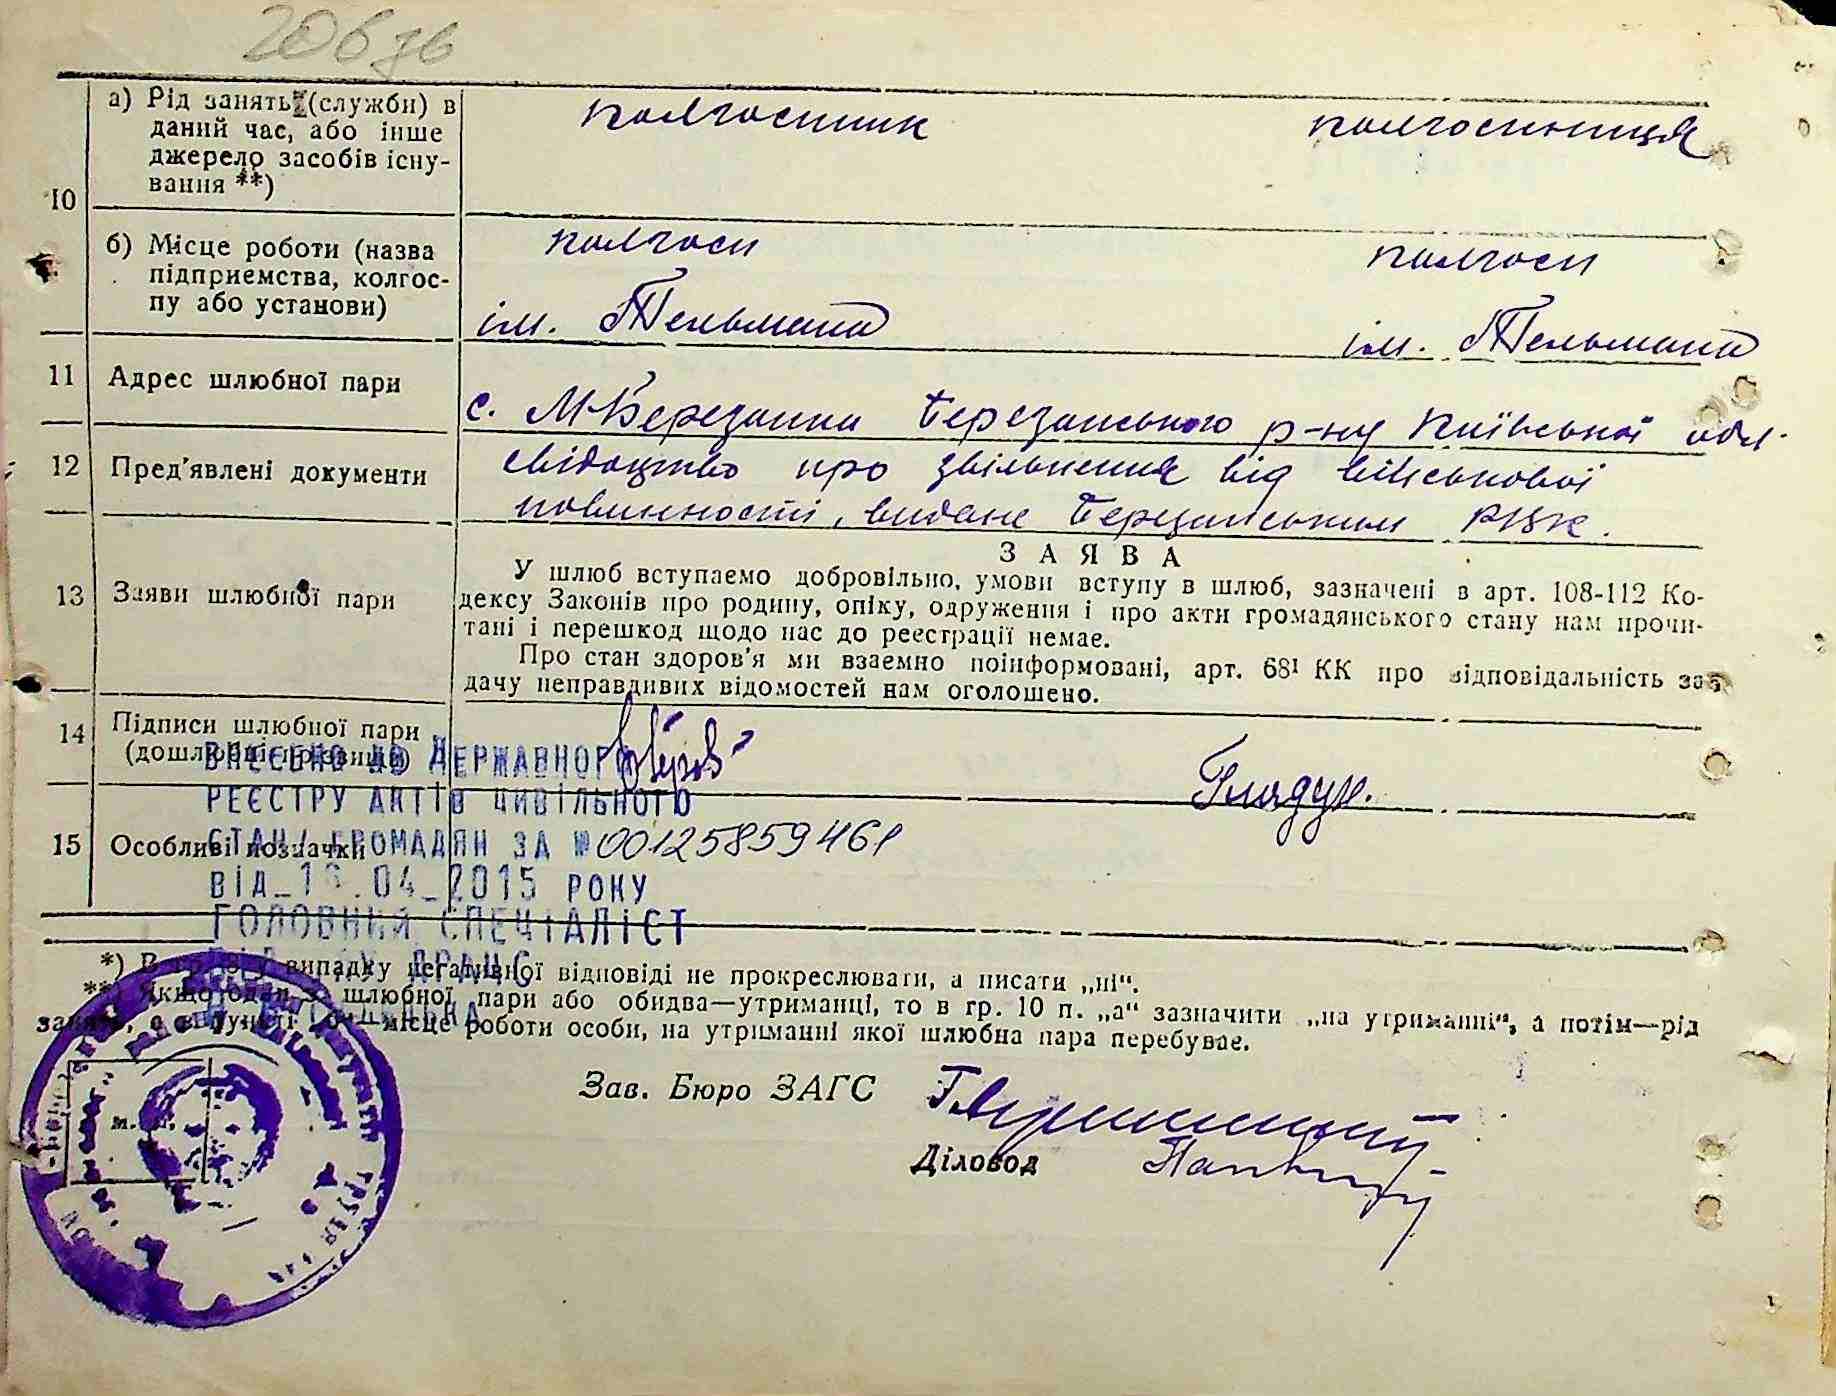 206 зв
10
а) Рід занять (служби) в
даний час, або інше
джерело засобів існу-
вання **)
колгоспник
колгоспниця
б) Місце роботи (назва
підприємства, колгос-
пу або установи)
колгосп
ім. Тельмана
колгосп
ім. Тельмана
11
Адрес шлюбної пари
с. М-Березанка Березанського р-ну Київської обл.
12
Пред'явлені документи
свідоцтво про звільнення від військової
повинності, видане Березанським РВК.
13
Заяви шлюбної пари
ЗАЯВА
У шлюб вступаємо добровільно, умови вступу в шлюб, зазначені в арт. 108-112 Ко-
дексу Законів про родину, опіку, одруження і про акти громадянського стану нам прочи-
тані і перешкод щодо нас до реєстрації немає.
Про стан здоров'я ми взаємно поінформовані, арт. 68¹ КК про відповідальність за
дачу неправдивих відомостей нам оголошено.
14
Підписи шлюбної пари
(дошлюбні прізвища)
Гладун.
ВНЕСЕНО ДО ДЕРЖАВНОГО
РЕЄСТРУ АКТІВ ЦИВІЛЬНОГО
15
Особливі позначки
СТАНУ ГРОМАДЯН ЗА № 00125859461
ВІД .04 2015 РОКУ
ГОЛОВНИЙ СПЕЦІАЛІСТ
ДРАЦС
*) В гр. у випадку негативної відповіді не прокреслювати, а писати „ні“.
**) Якщо один з шлюбної пари або обидва—утриманці, то в гр. 10 п. „а“ зазначити „на утриманні“, а потім—рід
занять, а в пункті місце роботи особи, на утриманні якої шлюбна пара перебуває.
Зав. Бюро ЗАГС
м. п.
Діловод